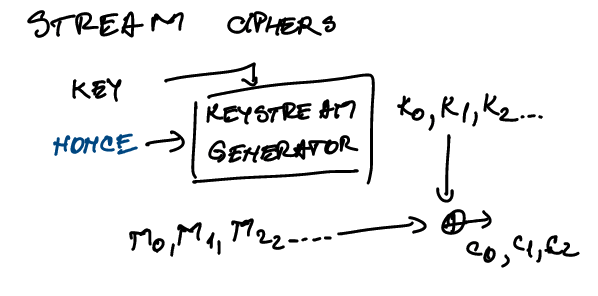 STREAM CIPHERS
KEY
KEYSTREAM
GENERATOR
NONCE
K0, K1, K2...
M0, M1, M22.....
C0, C1, C2